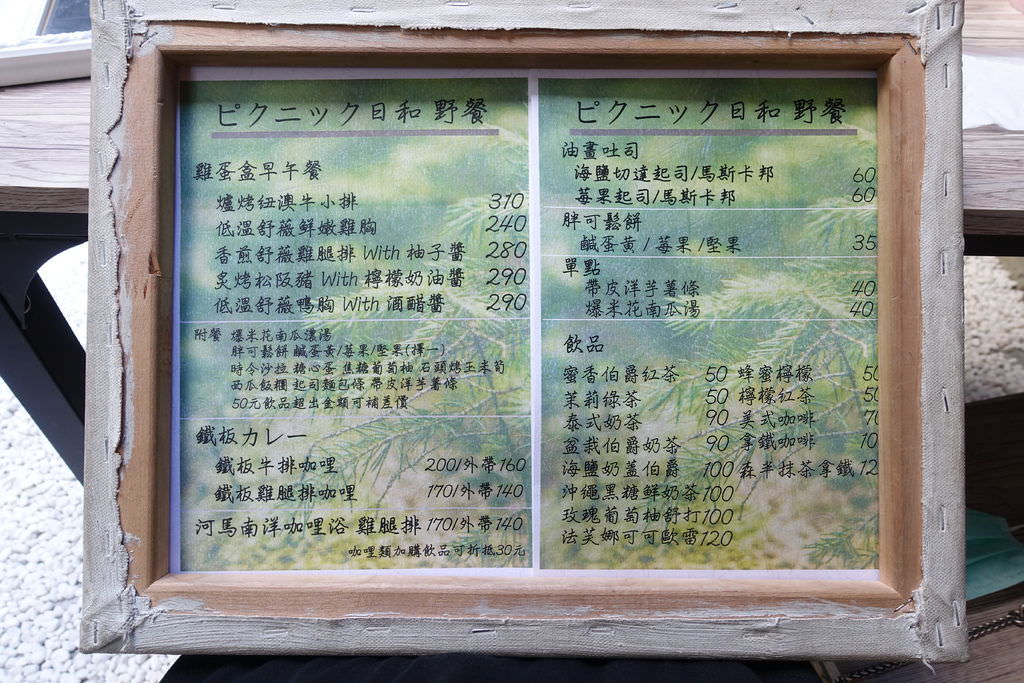 ピクニック日和 野餐
雞蛋盒早午餐
爐烤紐澳牛小排 310
低溫舒薇鮮嫩雞胸 240
香煎舒薇雞腿排 With 柚子醬 280
炙烤松阪豬 With 檸檬奶油醬 290
低溫舒薇鴨胸 With 酒醋醬 290
附餐 爆米花南瓜濃湯
胖可鬆餅 鹹蛋黃/莓果/堅果(擇一)
時令沙拉 糖心蛋 焦糖葡萄柚 石頭烤玉米筍
西瓜飯糰 起司麵包條 帶皮洋芋薯條
50元飲品超出金額可補差價
鐵板カレー
鐵板牛排咖哩 200/外帶160
鐵板雞腿排咖哩 170/外帶140
河馬南洋咖哩浴 雞腿排 170/外帶140
咖哩類加購飲品可折抵30元
ピクニック日和 野餐
油畫吐司
海鹽切達起司/馬斯卡邦 60
莓果起司/馬斯卡邦 60
胖可鬆餅
鹹蛋黃/莓果/堅果 35
單點
帶皮洋芋薯條 40
爆米花南瓜湯 40
飲品
蜜香伯爵紅茶 50 蜂蜜檸檬 50
茉莉綠茶 50 檸檬紅茶 50
泰式奶茶 90 美式咖啡 70
盆栽伯爵奶茶 90 拿鐵咖啡 10
海鹽奶蓋伯爵 100 森半抹茶拿鐵 12
沖繩黑糖鮮奶茶 100
玫瑰葡萄柚舒打 100
法芙娜可可歐蕾 120